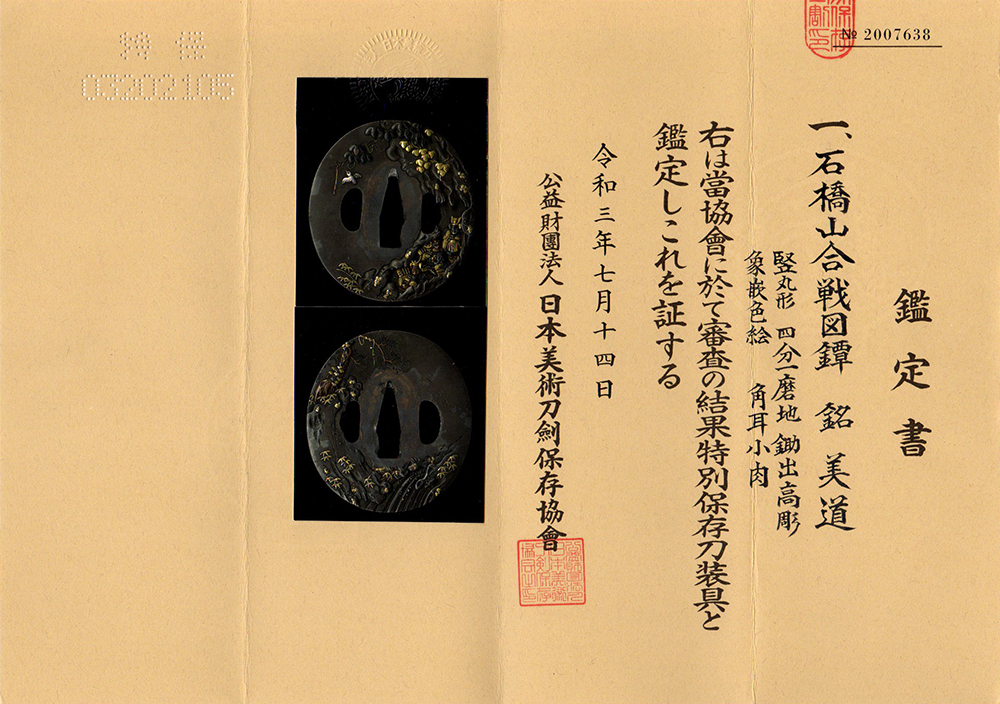 № 2007638
鑑定書
一、石橋山合戦図鐔 銘 美道
竪丸形 四分一磨地 鋤出高彫
象嵌色絵 角耳小肉
右は當協會に於て審査の結果特別保存刀装具と
鑑定しこれを証する
令和三年七月十四日
公益財團法人 日本美術刀劍保存協會
特保
03202105